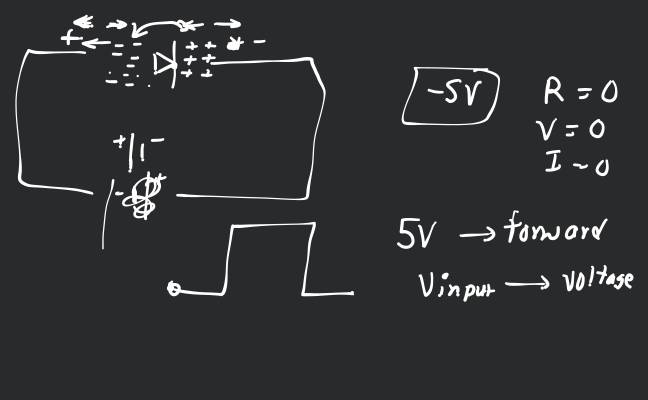 + -
-5V
R = 0
V = 0
I ~ 0
+ -
- +
5V → forward
Vinput → voltage